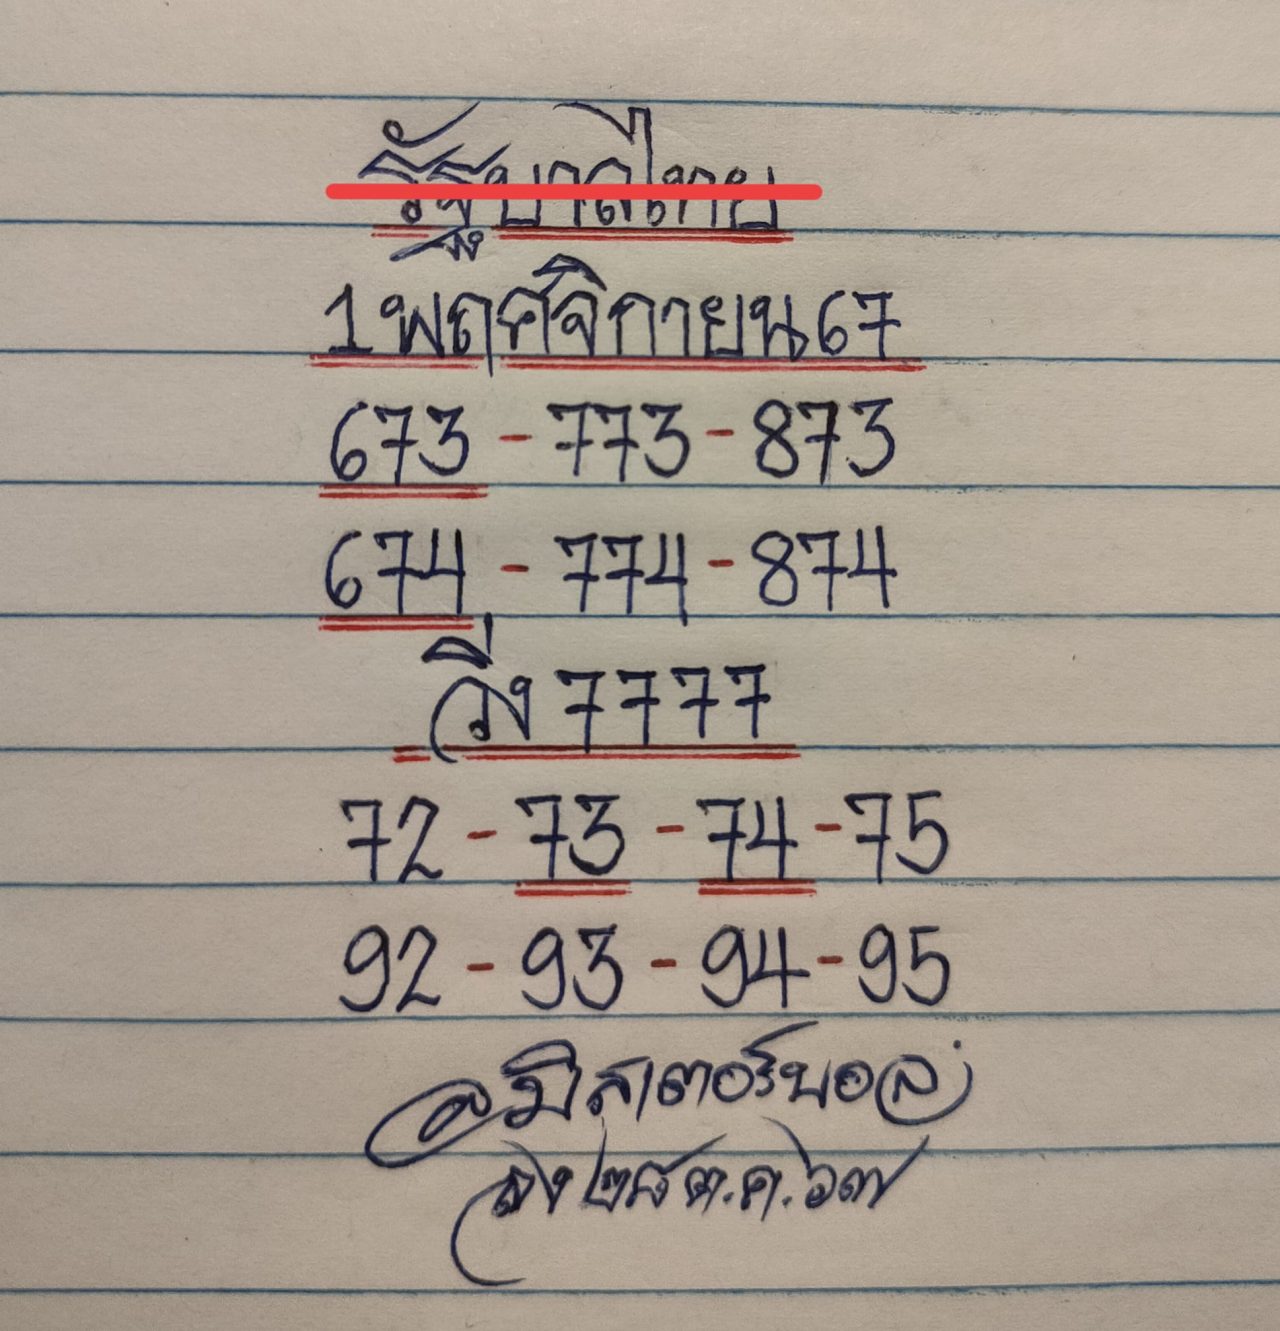 รัฐบาลไทย
1 พฤศจิกายน 67
673 - 773 - 873
674 - 774 - 874
วิ่ง 7777
72 - 73 - 74 - 75
92 - 93 - 94 - 95
@มิสเตอร์บอล
ลง ๒๘ ต.ค. ๖๗